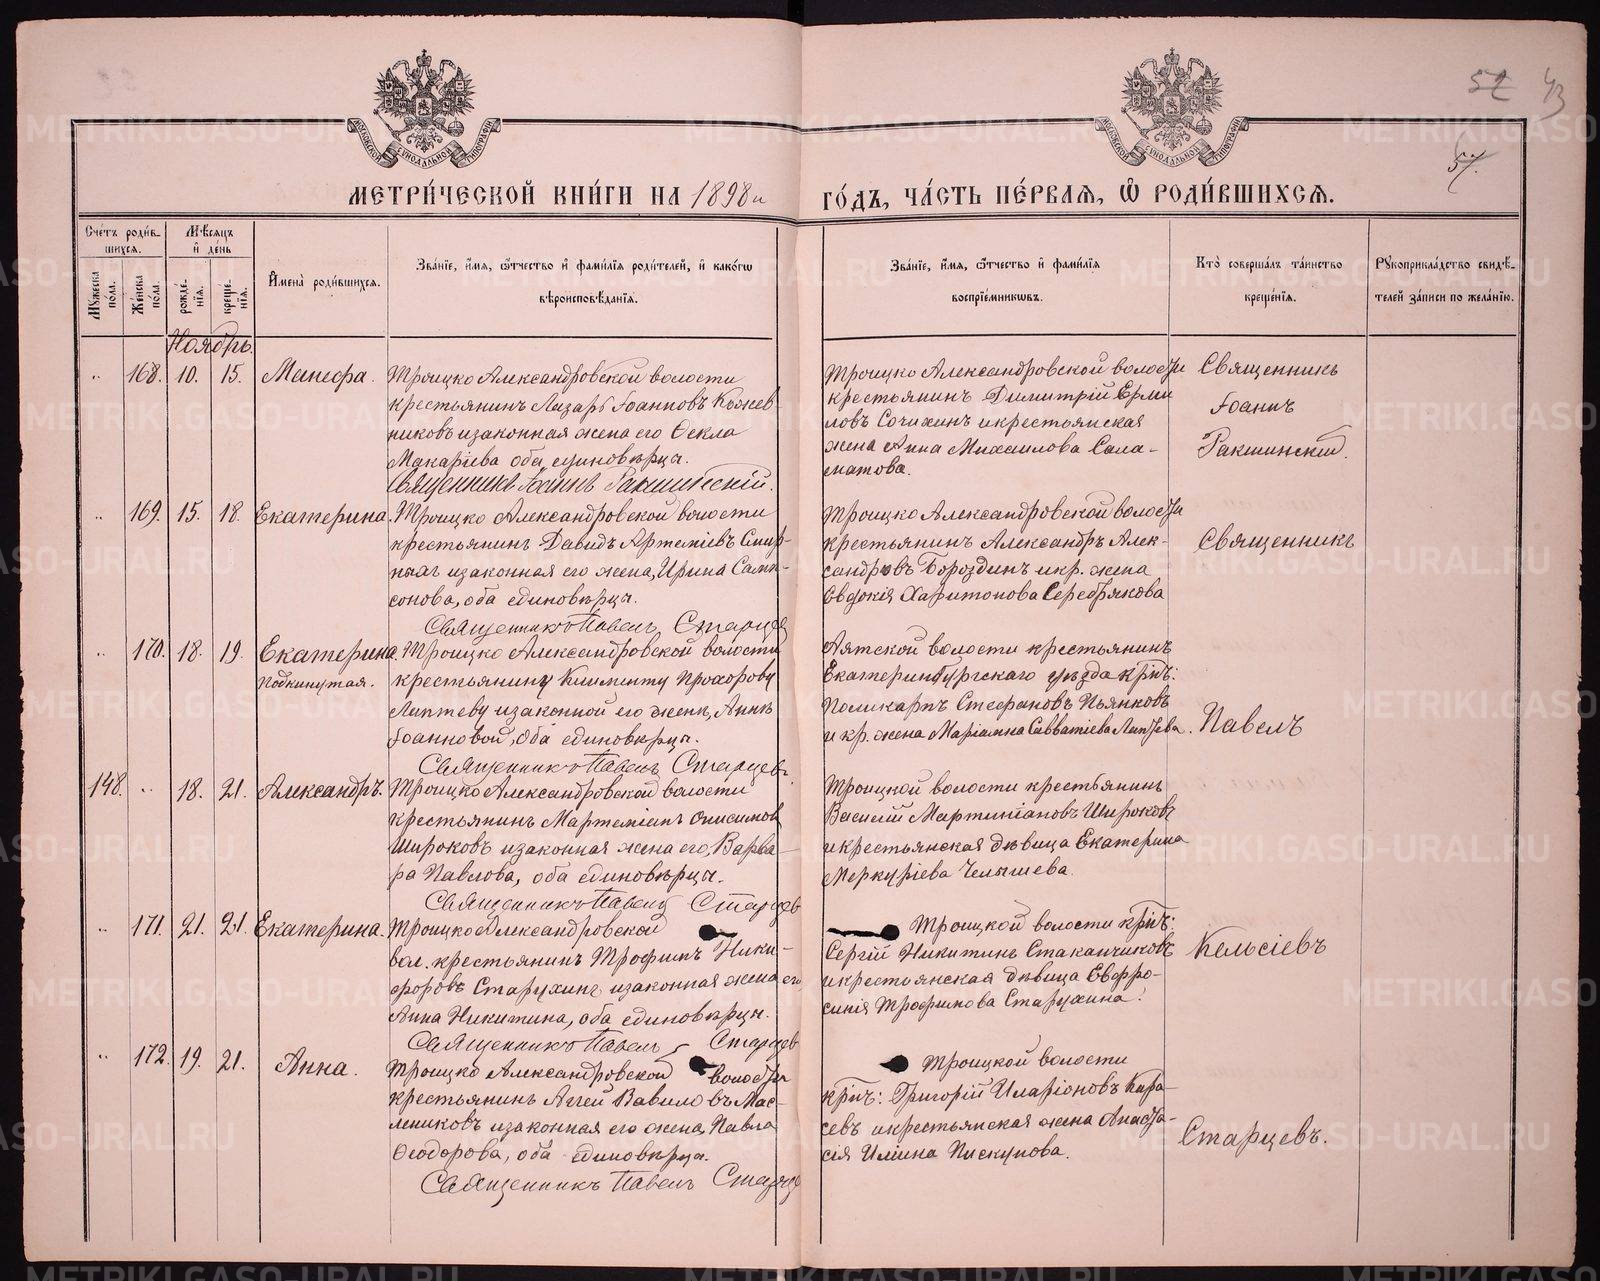 52 43
57.
МЕТРИ́ЧЕСКОЙ КНИ́ГИ НА 1898й ГО́ДЪ, ЧА́СТЬ ПЕ́РВАЯ, Ѽ РОДИ́ВШИХСЯ.
Сче́тъ роди́вшихся.
Мѣ́сяцъ и҆ де́нь
Мꙋ́жеска по́ла.
Же́нска по́ла.
рожде́нїя.
креще́нїя.
И҆мена̀ роди́вшихся.
Зва́нїе, и҆́мя, ѻ҆́тчество и҆ фами́лїя роди́телей, и҆ како́гѡ
вѣроисповѣ́данїя.
Зва́нїе, и҆́мя, ѻ҆́тчество и҆ фами́лїя
воспрїе́мникѡвъ.
Кто̀ соверша́лъ та́инство
креще́нїя.
Рꙋкоприкла́дство свидѣ́-
телей за́писи по жела́нїю.
Ноябрь.
„ 168. 10. 15. Манефа.
Троицко Александровской волости
крестьянинъ Лазарь Іоанновъ Кожев-
никовъ и законная жена его Ѳекла
Макаріева оба единовѣрцы.
Священникъ Іоаннъ Ракшинскій.
Троицко Александровской волости
крестьянинъ Димитрій Ерми
ловъ Сочихинъ и крестьянская
жена Анна Михаилова Сала-
матова.
Священникъ
Іоаннъ
Ракшинскій.
„ 169. 15. 18. Екатерина.
Троицко Александровской волости
крестьянинъ Давидъ Артеміевъ Смир-
ныхъ и законная его жена, Ирина Самп-
сонова, оба единовѣрцы.
Священникъ Павелъ Старцев
Троицко Александровской волости
крестьянинъ Александръ Алек-
сандровъ Бороздинъ и кр. жена
Евдокія Харитонова Серебрякова
Священникъ
„ 170. 18. 19. Екатерина
подкинутая.
Троицко Александровской волости
крестьянину Клименту Прохорову
Лаптеву и законной его женѣ, Аннѣ
Іоанновой, оба единовѣрцы.
Священникъ Павелъ Старцев.
Аятской волости крестьянинъ
Екатеринбургскаго уѣзда крѣ:
Поликарпъ Стефановъ Пьянковъ
и кр. жена Маріамна Савватіева Лаптева.
Павелъ
148. „ 18. 21. Александръ.
Троицко Александровской волости
крестьянинъ Мартеміанъ Онисимов
Широковъ и законная жена его, Варва-
ра Павлова, оба единовѣрцы.
Священникъ Павелъ Старцев
Троицкой волости крестьянинъ
Василій Мартиніановъ Широковъ
и крестьянская дѣвица Екатерина
Меркуріева Челышева.
„ 171. 21. 21. Екатерина.
Троицко Александровской
вол. крестьянинъ Трофимъ Ники-
форовъ Старухинъ и законная жена его
Анна Никитина, оба единовѣрцы.
Священникъ Павелъ Старцев
Троицкой волости крѣ:
Сергій Никитинъ Стаканчиковъ
и крестьянская дѣвица Евфро-
синія Трофимова Старухина.
Кельсіевъ
„ 172. 19. 21. Анна.
Троицко Александровской волости
крестьянинъ Аггей Вавиловъ Мас-
лениковъ и законная его жена, Павла
Ѳеодорова, оба единовѣрцы.
Священникъ Павелъ Старцев
Троицкой волости
крѣ: Григорій Иларіоновъ Кара-
севъ и крестьянская жена Анаста-
сія Иліина Пискунова.
Старцевъ.